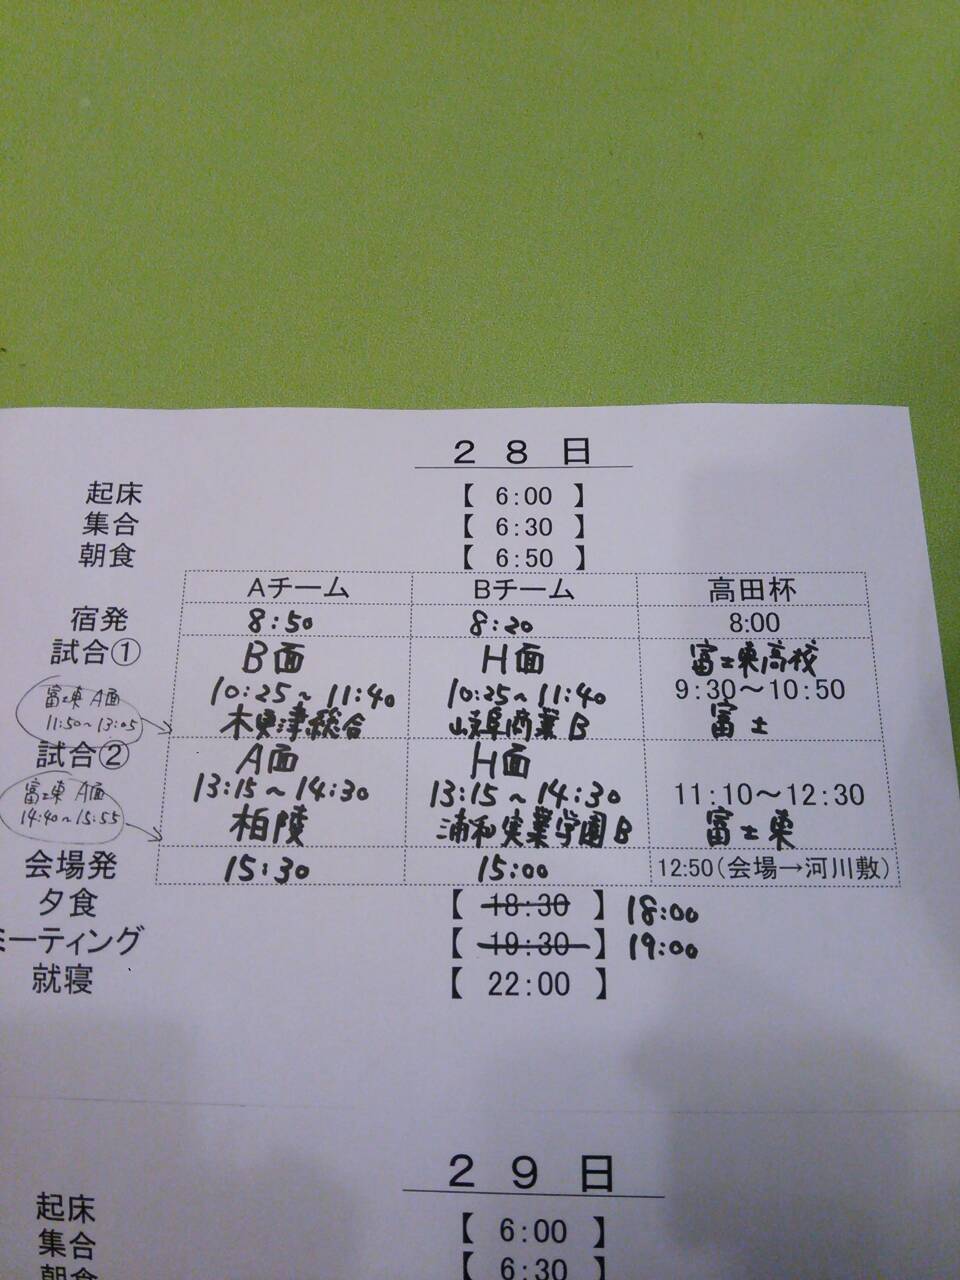 ２８日
起床 【 6:00 】
集合 【 6:30 】
朝食 【 6:50 】
Aチーム Bチーム 高田杯
宿発 8:50 8:20 8:00
試合① B面 H面 富士東高校
10:25～11:40 10:25～11:40 9:30～10:50
木更津総合 岐阜商業B 富士
富士東 A面
11:50～13:05
試合② A面 H面
13:15～14:30 13:15～14:30 11:10～12:30
柏陵 浦和実業学園B 富士東
富士東 A面
14:40～15:55
会場発 15:30 15:00 12:50(会場→河川敷)
夕食 【 18:30 】 18:00
ミーティング 【 19:30 】 19:00
就寝 【 22:00 】
２９日
起床 【 6:00 】
集合 【 6:30 】
朝食